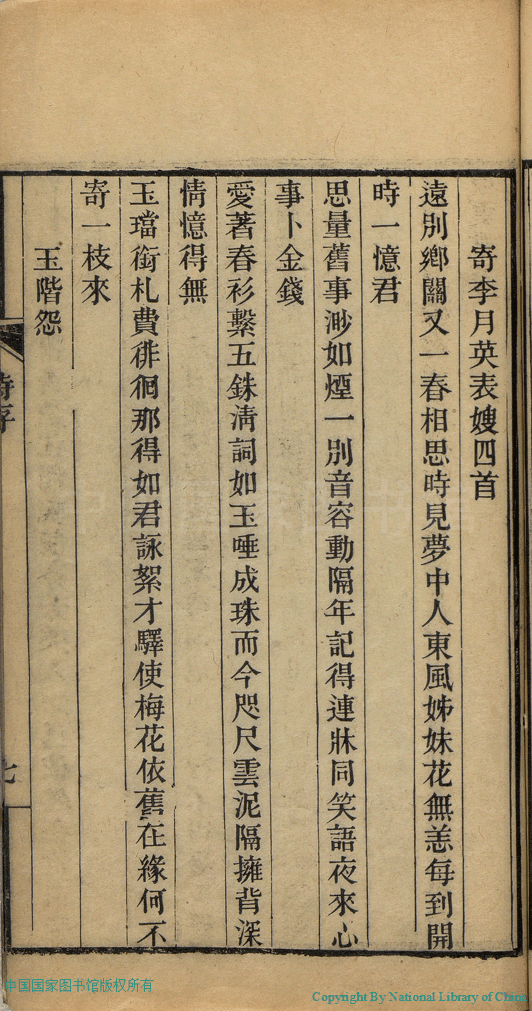 寄李月英表嫂四首
遠別鄉關又一春相思時見夢中人東風姊妹花無恙每到開
時一憶君
思量舊事渺如煙一別音容動隔年記得連牀同笑語夜來心
事卜金錢
愛著春衫繫五銖清詞如玉唾成珠而今咫尺雲泥隔擁背深
情憶得無
玉璫銜札費徘徊那得如君詠絮才驛使梅花依舊在緣何不
寄一枝來
玉階怨
詩存
七
中国国家图书馆版权所有
Copyright By National Library of China